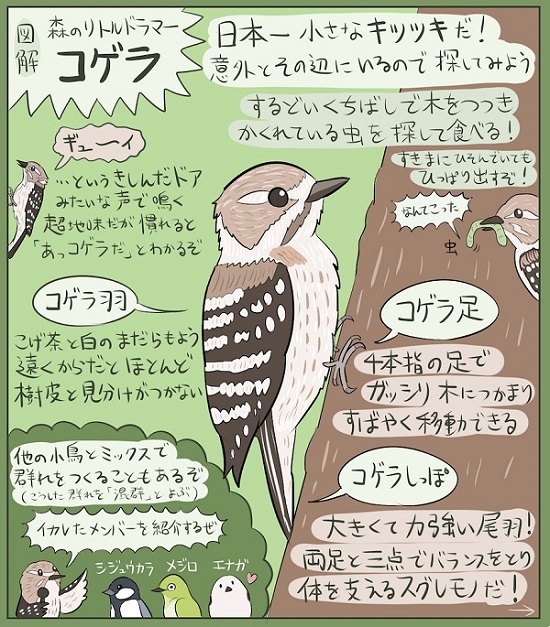 図解
森のリトルドラマー
コゲラ
日本一 小さなキツツキだ!
意外とその辺にいるので 探してみよう
するどいくちばしで木をつつき
かくれている虫を探して食べる!
すきまにひそんでいても
ひっぱり出すぞ!
なんてこった
虫
ギューーイ
…というきしんだドア
みたいな声で鳴く
超地味だが慣れると
「あっコゲラだ」とわかるぞ
コゲラ羽
こげ茶と白のまだらもよう
遠くからだとほとんど
樹皮と見分けがつかない
コゲラ足
4本指の足で
ガッシリ木につかまり
すばやく移動できる
コゲラしっぽ
大きくて力強い尾羽!
両足と三点でバランスをとり
体を支えるスグレモノだ!
他の小鳥とミックスで
群れをつくることもあるぞ
(こうした群れを「混群」とよぶ)
イカレたメンバーを紹介するぜ
シジュウカラ メジロ エナガ